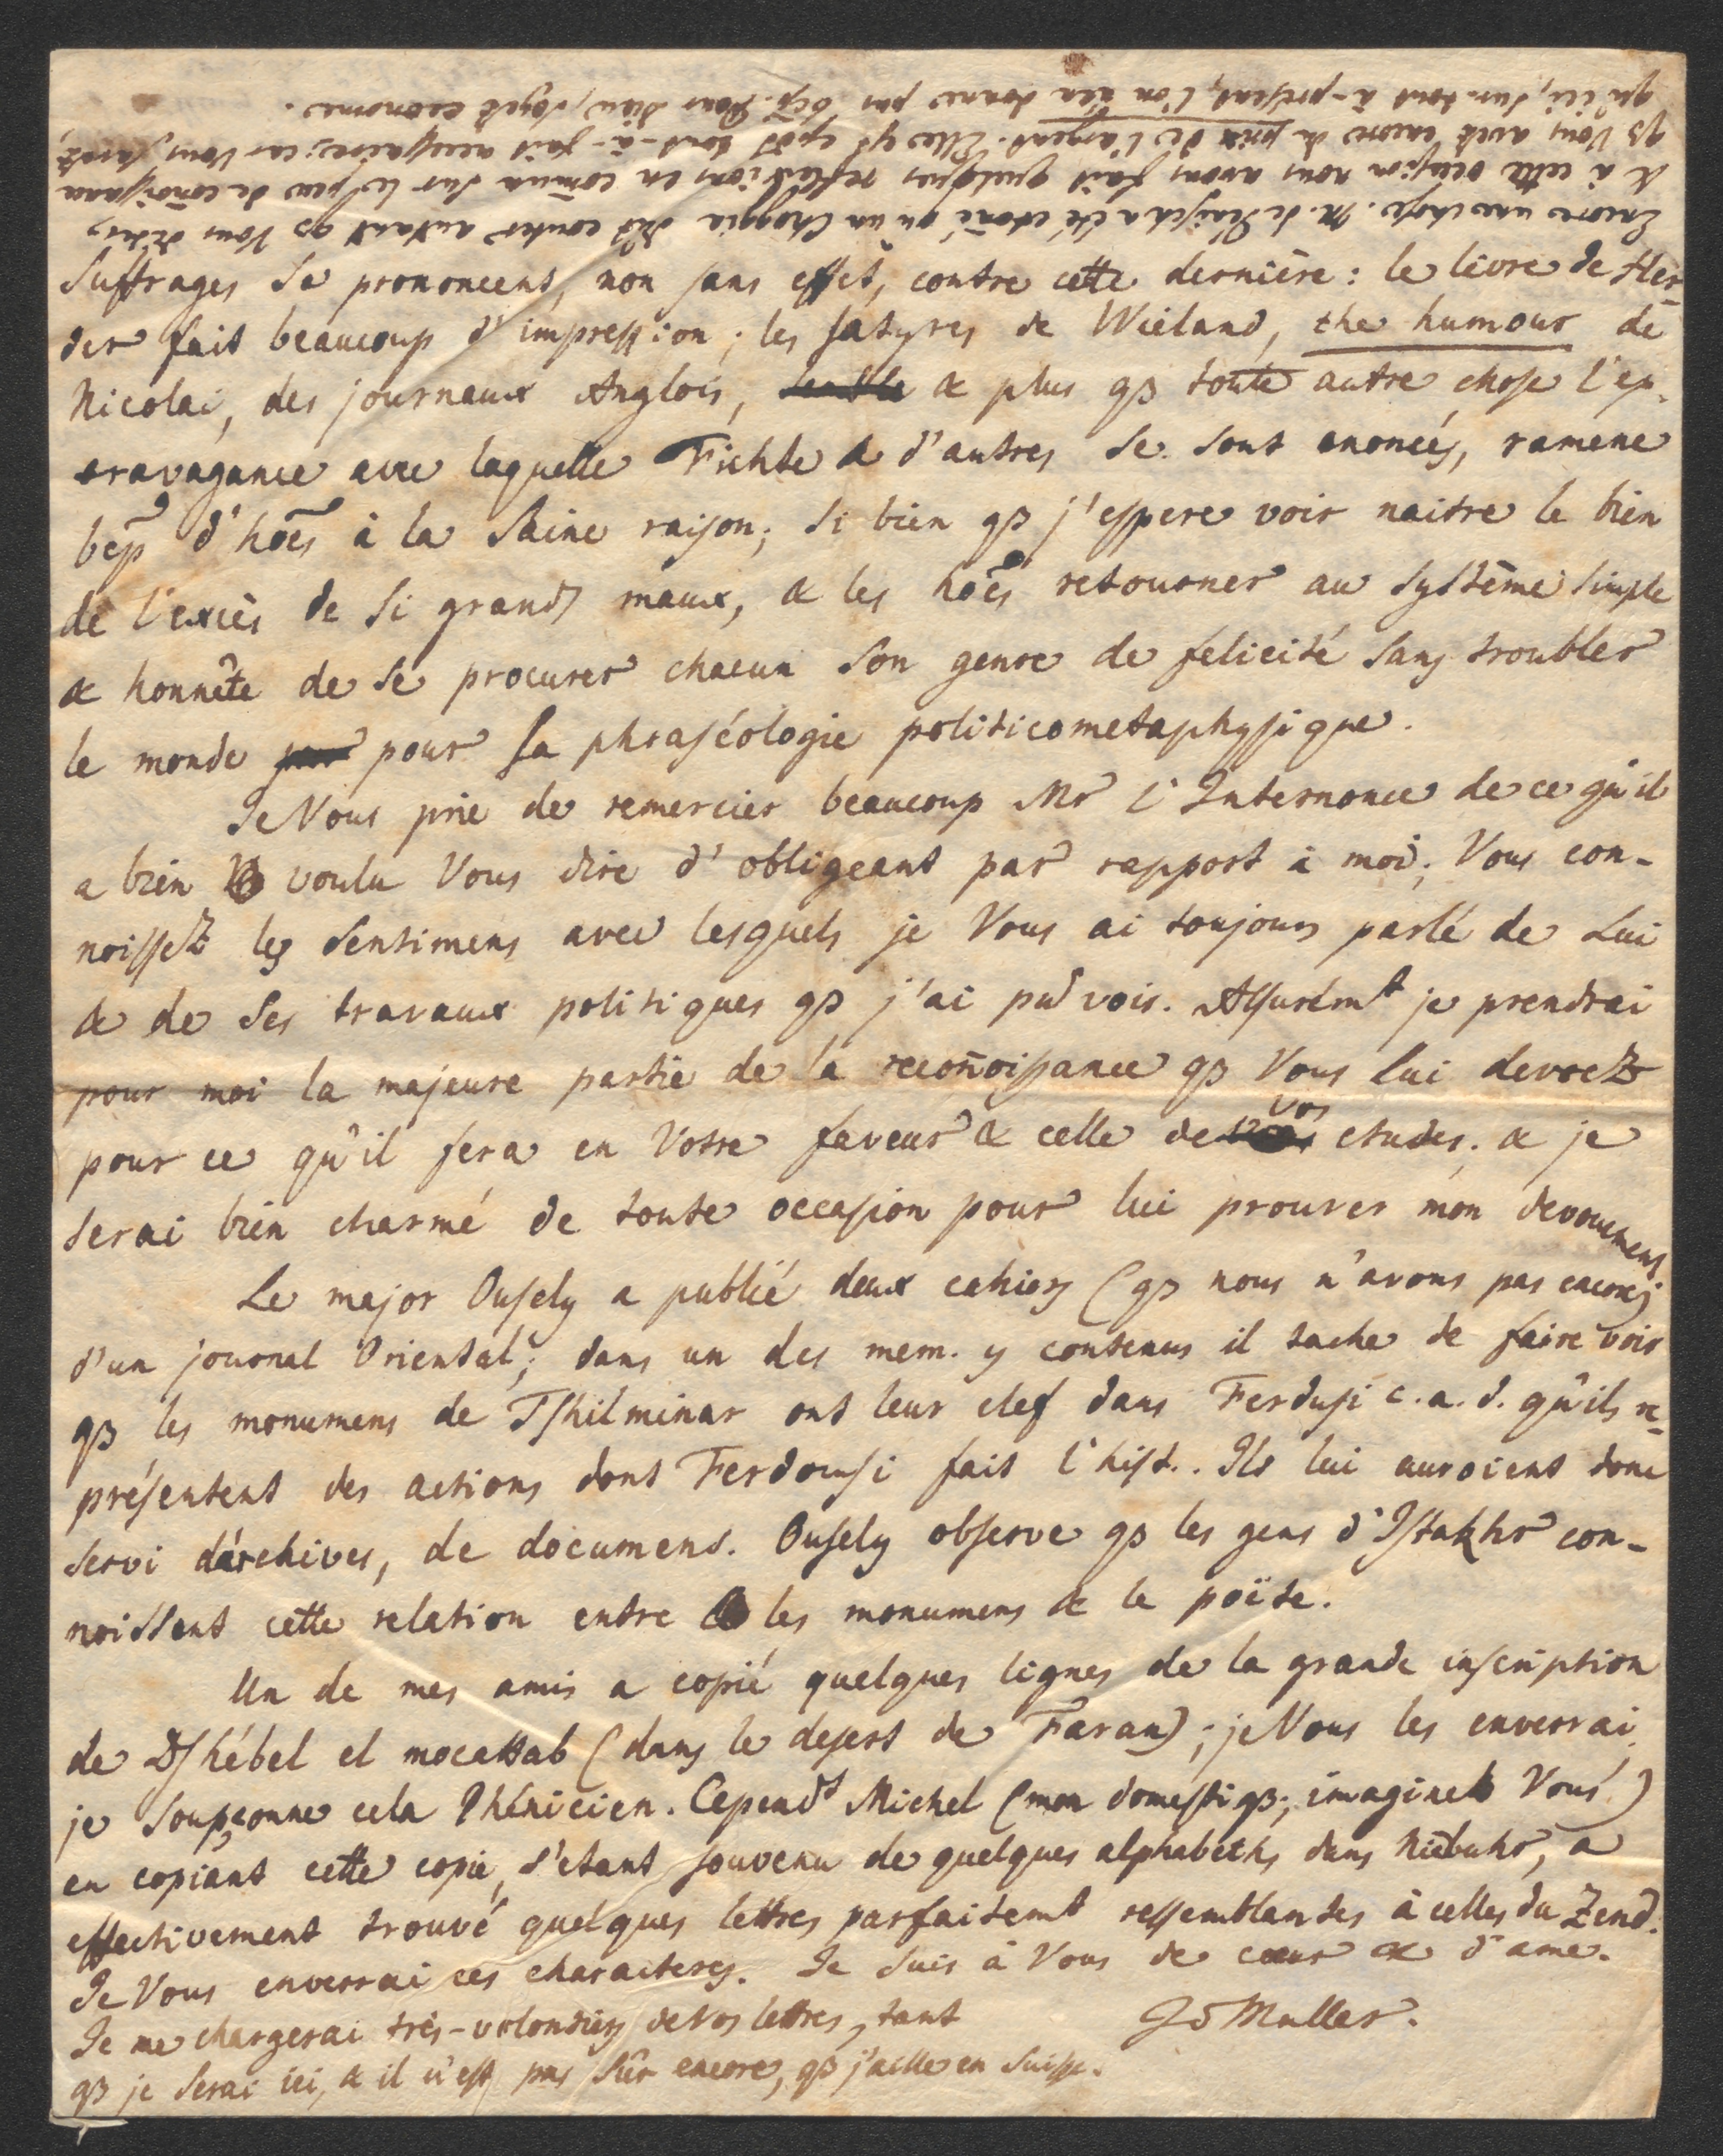 suffrages se prononcent, non sans effet, contre cette dernière: le livre de Her-
der fait beaucoup d'impression; les satyres de Wieland, the humour de
Nicolai, des journaux Anglois, & plus qs toute autre chose l'ex-
travagance avec laquelle Fichte & d'autres se sont enoncés, ramene
bep d'hoes à la saine raison; si bien qs j'espere voir naitre le bien
de l'excès de si grands maux, & les hoes retourner au système simple
& honnête de se procurer chacun son genre de felicité sans troubler
le monde pour sa phraséologie politicometaphysique.
Je Vous prie de remercier beaucoup Mr l'Internonce de ce qu'il
a bien voulu Vous dire d'obligeant par rapport à moi; Vous con-
noissez les sentimens avec lesquels je Vous ai toujours parlé de Lui
& de ses travaux politiques qs j'ai pu voir. Assurémt je prendrai
pour moi la majeure partie de la recoñoissance qs Vous lui devrez
pour ce qu'il fera en Votre faveur & celle de vos etudes; & je
serai bien charmé de toute occasion pour lui prouver mon devouement
Le major Ousely a publié deux cahiers (qs nous n'avons pas encore)
d'un journal Oriental; dans un des mem. y contenus il tache de faire voir
qs les monumens de Tshilminar ont leur clef dans Ferdusi c.a.d. qu'ils re-
présentent des actions dont Ferdousi fait l'hist.. Ils lui auroient donc
servi d'archives, de documens. Ousely observe qs les gens d'Istakhr con-
noissent cette relation entre les monumens & le poëte.
Un de mes amis a copié quelques lignes de la grande inscription
de Dshébel el mocattab (dans le desert de Faran); je Vous les enverrai.
je soupçonne cela Phénicien. Cependt Michel (mon domestiqs; imaginez Vous!)
en copiant cette copie, s'etant souvenu de quelques alphabeths dans Niebuhr, a
effectivement trouvé quelques lettres parfaitemt ressemblantes à celles du Zend.
Je Vous enverrai ces characteres. Je suis à Vous de cœur & d'ame.
JvMuller.
Je me chargerai très-volontiers de Vos lettres, tant
qs je serai ici, & il n'est pas sûr encore, qs j'aille en Suisse.
Encore une chose. M. de a été etoñé qu'un doit couter autant qs Vous dites,
& à cette occasion nous avons fait quelques reflexions en comun sur le peu de coñoissance
qs Vous avez encore du prix de l'argent. Elle est cepdt tout-à-fait necessaire; car Vous savez,
qu'ici, sur-tout à-present, l'on n'en donne pas Pour Dieu, soyez econome.